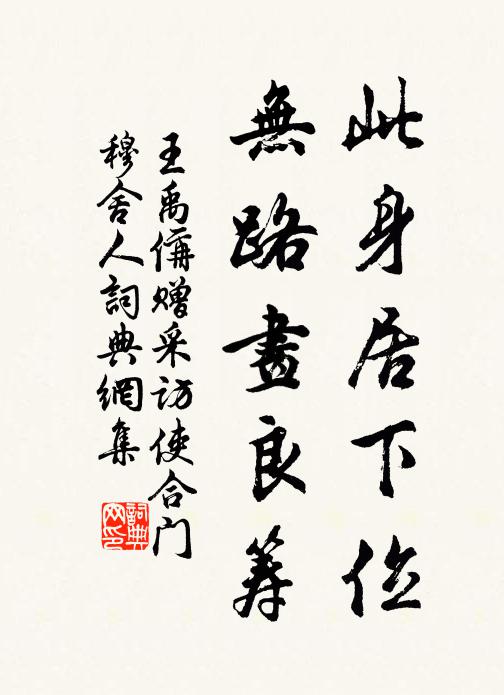 此身居下位
無路畫良筹
王禹偁赠采访使合门
穆舍人詞典網集
詞典网印